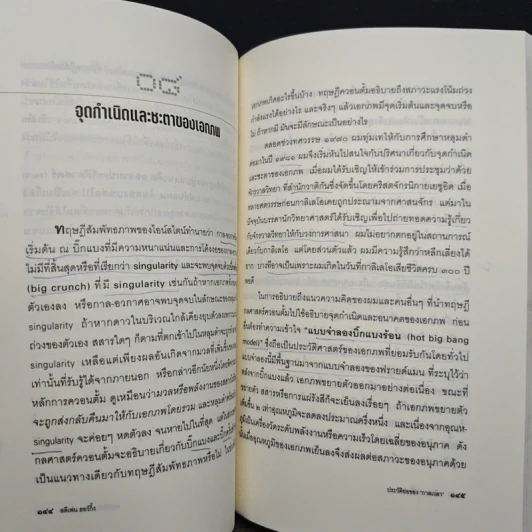 ๐๘
จุดกำเนิดและชะตาของเอกภพ
ทฤษฎีสัมพัทธภาพของไอน์สไตน์ทำนายว่า กาลอวกาศ
เริ่มต้น ณ บิ๊กแบงที่มีความหนาแน่นและการโค้งของ
ไม่มีที่สิ้นสุดหรือที่เรียกว่า singularity และจะพบจุดจบ
(big crunch) ที่มี singularity เช่นกันถ้าหากเอกภพทั้ง
ตัวเองลง หรือกาล-อวกาศอาจพบจุดจบในลักษณะของ
singularity ถ้าหากดาวในบริเวณใกล้เคียงยุบตัวลงเพราะ
ถ่วงของตัวเอง สสารใดๆ ก็ตามที่ตกเข้าไปในหลุมดำจะถูก
singularity เหลือแต่เพียงผลอันเกิดจากมวลที่เพิ่มขึ้น
เท่านั้นที่รับรู้ได้จากภายนอก หรือกล่าวอีกนัยหนึ่ง
หลักการควอนตั้ม ดูเหมือนว่ามวลหรือพลังงานของสสาร
จะถูกส่งกลับคืนมาให้กับเอกภพโดยรวม และหลุมดำ
singularity จะค่อยๆ หดตัวลง จนหายไปในที่สุด
กลศาสตร์ควอนตั้มจะอธิบายเกี่ยวกับบิ๊กแบงและ
เป็นแนวทางเดียวกับทฤษฎีสัมพัทธภาพหรือไม่
๑๔๔ สตีเฟน ฮอว์กิ้ง
เอกภพเกิดอะไรขึ้นบ้าง ทฤษฎีควอนตั้มอธิบายถึงสภาวะแรงโน้มถ่วง
กำลังแรงได้อย่างไร และจริงๆ แล้วเอกภพมีจุดเริ่มต้นและจุดจบหรือ
ไม่ ถ้าหากมี มันจะมีลักษณะเป็นอย่างไร
ตลอดช่วงทศวรรษ ๑๙๗๐ ผมทุ่มเทให้กับการศึกษาหลุมดำ
ต่อมาในปี ๑๙๘๑ ผมจึงเริ่มหันไปสนใจกับปริศนาเกี่ยวกับจุดกำเนิด
และชะตาของเอกภพ เมื่อผมได้รับเชิญให้เข้าร่วมการประชุมว่าด้วย
จักรวาลวิทยา ที่สำนักวาติกันซึ่งจัดขึ้นโดยคริสตจักรนิกายเยซูอิต เมื่อ
หลายศตวรรษก่อนกาลิเลโอเคยถูกประณามจากศาสนจักร แต่มาใน
ปัจจุบันบรรดานักวิทยาศาสตร์ได้รับเชิญเพื่อไปถ่ายทอดความรู้เกี่ยว
กับจักรวาลวิทยาให้กับวงการศาสนา ผมไม่อยากตกอยู่ในสถานการณ์
เดียวกับกาลิเลโอ แต่โดยส่วนตัวแล้ว ผมมีความรู้สึกว่าหลีกเลี่ยงได้
ยาก บางทีอาจเป็นเพราะผมเกิดในวันที่กาลิเลโอเสียชีวิตครบ ๓๐๐ ปี
พอดี
ในการอธิบายถึงแนวความคิดของผมและคนอื่นๆ ที่นำทฤษฎี
กลศาสตร์ควอนตั้มไปใช้อธิบายจุดกำเนิดและอนาคตของเอกภพ ก่อน
อื่นต้องทำความเข้าใจ "แบบจำลองบิ๊กแบงร้อน (hot big bang
model)" ซึ่งถือเป็นประวัติศาสตร์ของเอกภพที่ยอมรับกันโดยทั่วไป
แบบจำลองนี้มีพื้นฐานมาจากแบบจำลองของฟรายด์แมน ที่ระบุไว้ว่า
หลังจากบิ๊กแบงแล้ว เอกภพขยายตัวออกมาอย่างต่อเนื่อง ขณะที่
ขยายตัว สสารหรือแม่รังสีก็จะเย็นลงเรื่อยๆ ถ้าเอกภพขยายตัว
เพิ่มขึ้น ๒ เท่าอุณหภูมิจะลดลงประมาณครึ่งหนึ่ง และเนื่องจากอุณห-
ภูมิเป็นเครื่องวัดระดับพลังงานหรือความเร็วโดยเฉลี่ยของอนุภาค ดัง-
นั้นเมื่ออุณหภูมิของเอกภพเย็นลงจึงส่งผลต่อสภาวะของอนุภาคด้วย
ประวัติย่อของ "กาลเวลา" ๑๔๕